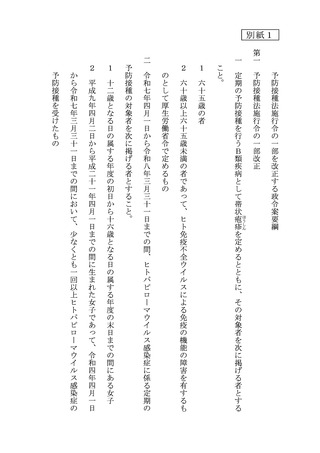 別紙１
予防接種法施行令の一部を改正する政令案要綱
第一　予防接種法施行令の一部改正
一　定期の予防接種を行うＢ類疾病として帯状疱疹を定めるとともに、その対象者を次に掲げる者とする
こと。
１　六十五歳の者
２　六十歳以上六十五歳未満の者であって、ヒト免疫不全ウイルスによる免疫の機能の障害を有するも
のとして厚生労働省令で定めるもの
二　令和七年四月一日から令和八年三月三十一日までの間、ヒトパピローマウイルス感染症に係る定期の
予防接種の対象者を次に掲げる者とすること。
１　十二歳となる日の属する年度の初日から十六歳となる日の属する年度の末日までの間にある女子
２　平成九年四月二日から平成二十一年四月一日までの間に生まれた女子であって、令和四年四月一日
から令和七年三月三十一日までの間において、少なくとも一回以上ヒトパピローマウイルス感染症の
予防接種を受けたもの